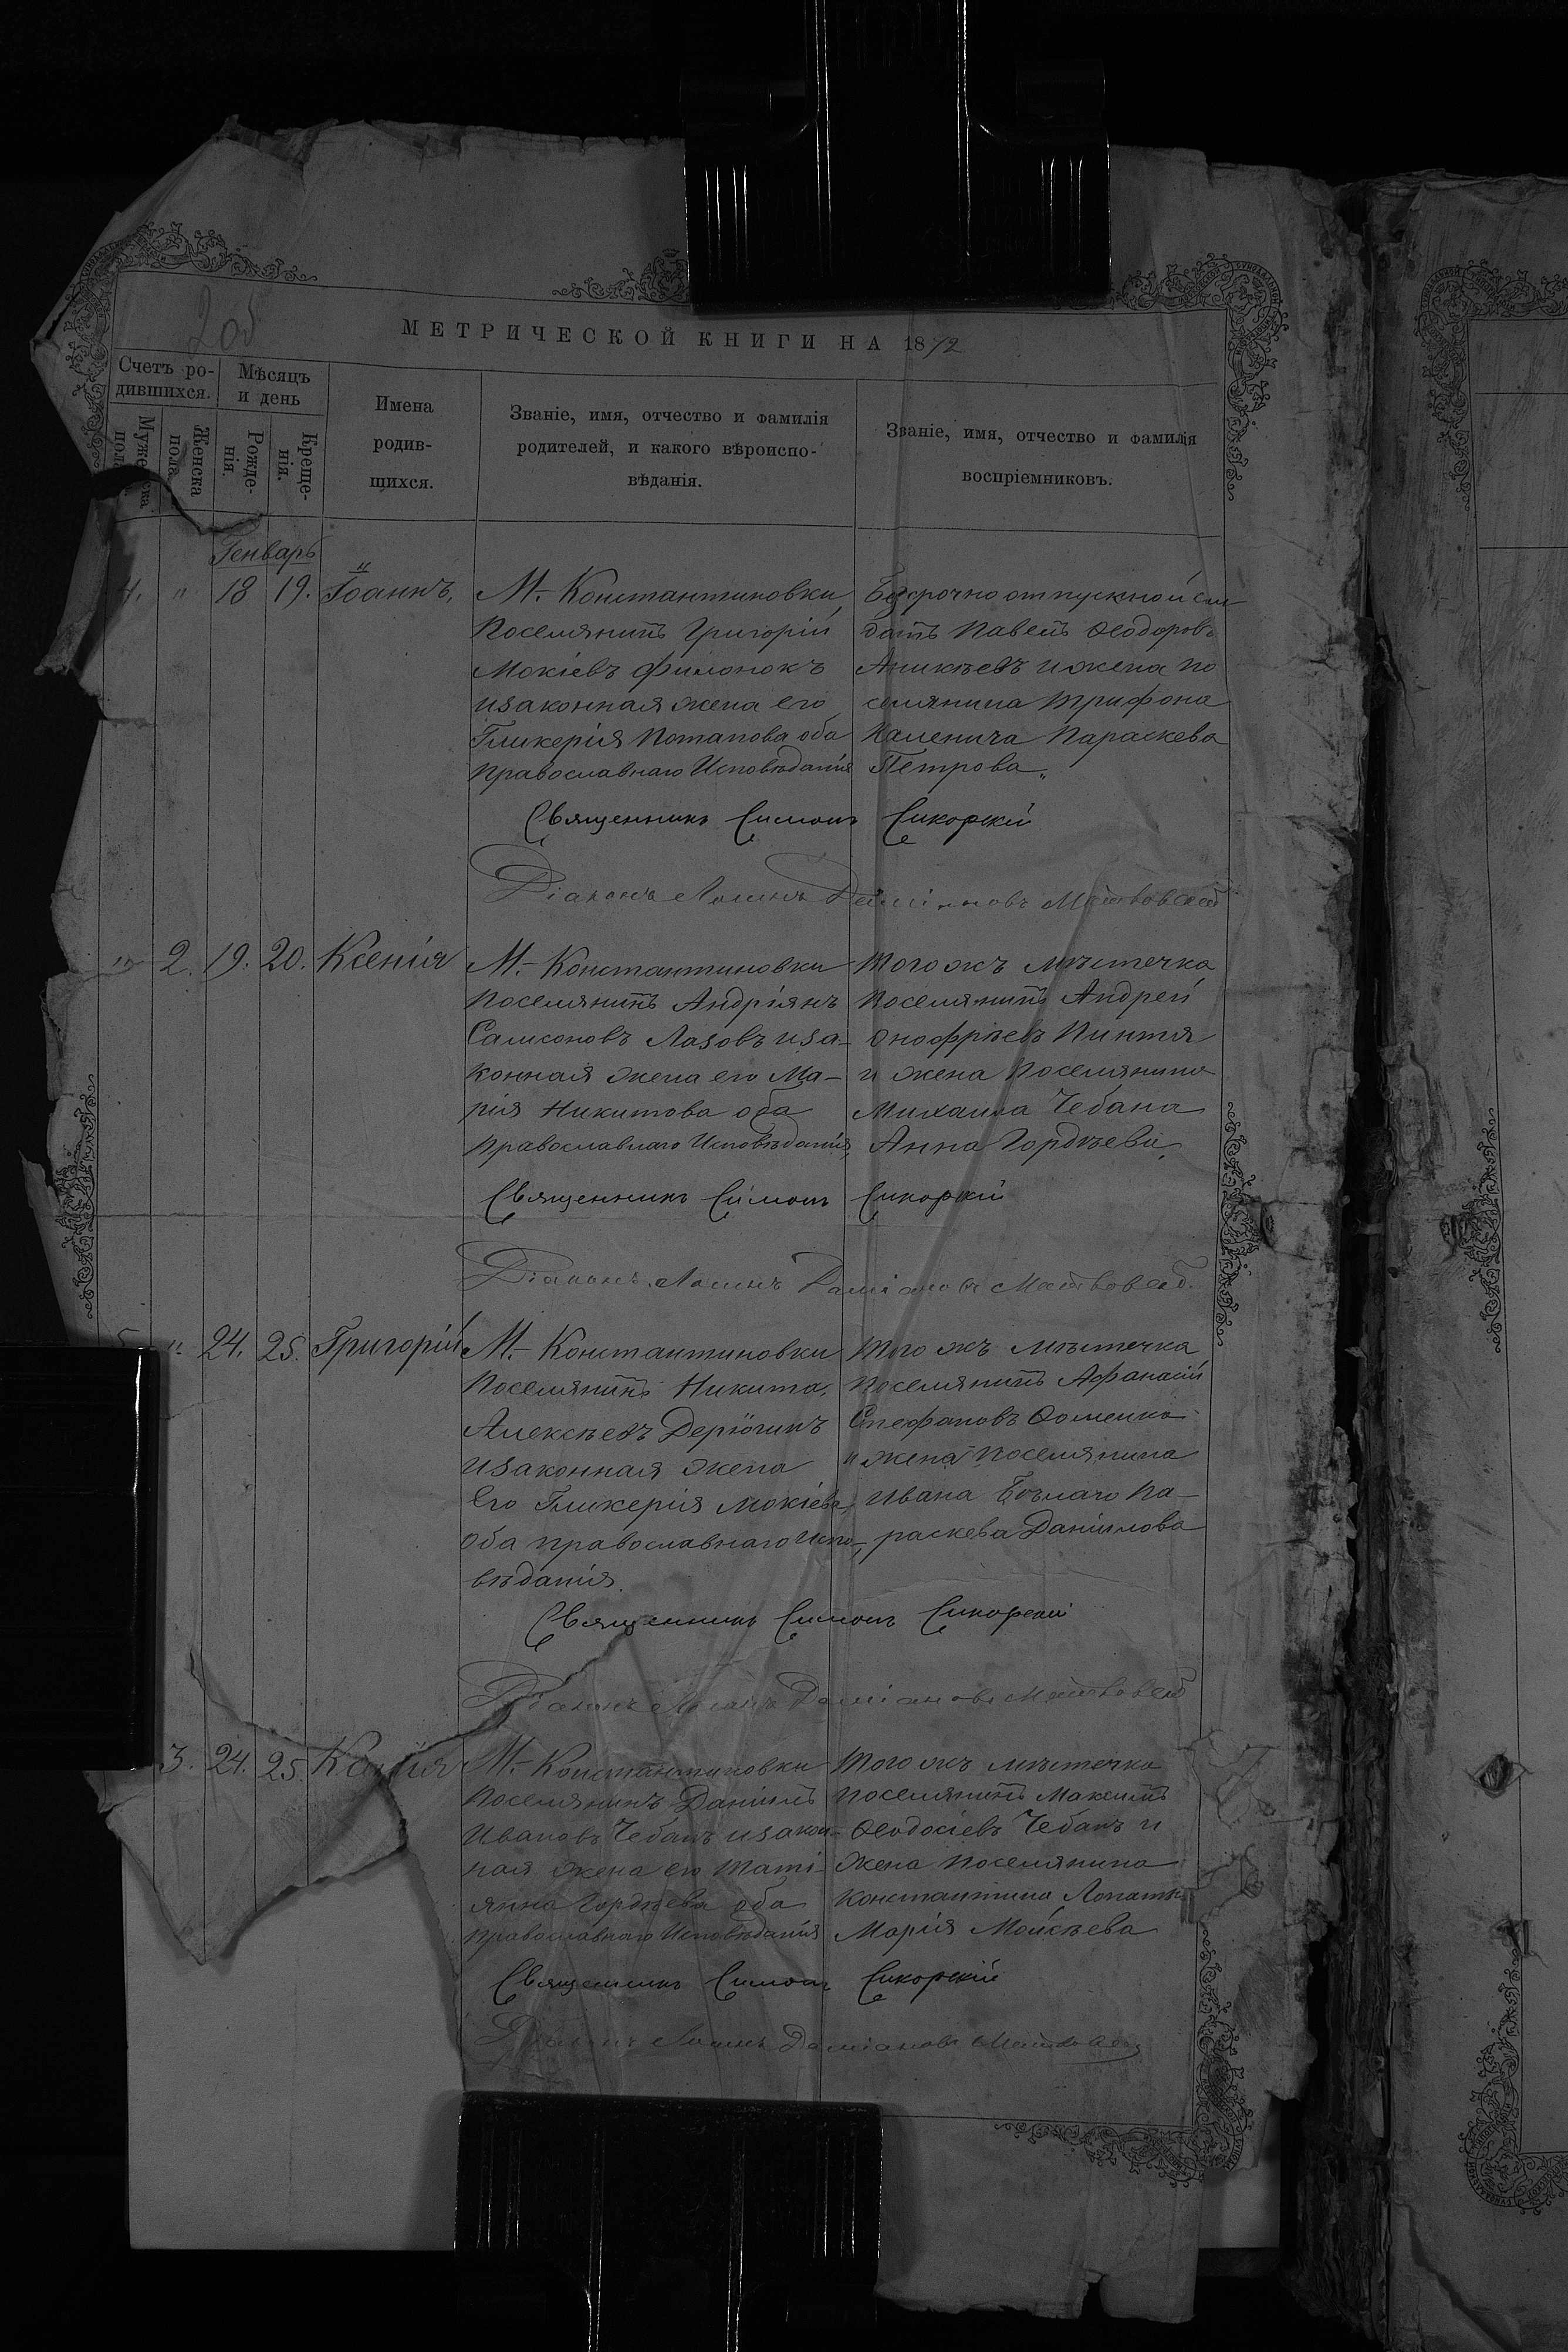 2об
МЕТРИЧЕСКОЙ КНИГИ НА 1872
Счетъ ро-
дившихся.
Мѣсяцъ
и день
Мужеска
пола.
Женска
пола.
Рожде-
нія.
Креще-
нія.
Имена
родив-
шихся.
Званіе, имя, отчество и фамилія
родителей, и какого вѣроиспо-
вѣданія.
Званіе, имя, отчество и фамилія
воспріемниковъ.
Генварь
4. " 18 19. Іоаннъ,
М. Константиновки
Поселянинъ Григорій
Мокіевъ Филонокъ
и законная жена его
Гликерія Потапова оба
Православнаго Исповѣданія
Безсрочно отпускной сол
датъ Павелъ Ѳеодоровъ
Аникѣевъ и жена по
селянина Трифона
Параскева
Петрова.
Священникъ Симонъ Сикорскій
Діаконъ Даміановъ
" 2. 19. 20. Ксенія
М. Константиновки
Поселянинъ Андріянъ
Самсоновъ Лазовъ и за-
конная жена его Ма-
рія Никитова оба
Православнаго Исповѣданія,
Тогожъ мѣстечка
Поселянинъ Андрей
Онофріевъ Пинтя
и жена Поселянина
Михаила Чебана
Анна Гордѣева
Священникъ Симонъ Сикорскій
Діаконъ Даміановъ
" 24. 25. Григорій
М. Константиновки
Поселянинъ Никита,
Алексѣевъ Дерюгинъ
и законная жена
Его Гликерія Мокіева,
Оба православнаго Испо-
вѣданія.
Того жъ мѣстечка
Поселянинъ Афанасій
Стефановъ Ѳоменко
и жена Поселянина
Ивана Бѣлаго Па-
раскева Даніилова
Священникъ Симонъ Сикорскій
Діаконъ Даміановъ
3. 24. 25.
М. Константиновки
Поселянинъ Даніилъ
Ивановъ Чебанъ и закон-
ная жена его Таті-
янна Гордѣева оба
Православнаго Исповѣданія
Того жъ мѣстечка
поселянинъ Максимъ
Ѳеодосіевъ Чебанъ и
жена Поселянина
Константина
Марія Моисѣева
Священникъ Симонъ Сикорскій
Діаконъ Даміановъ